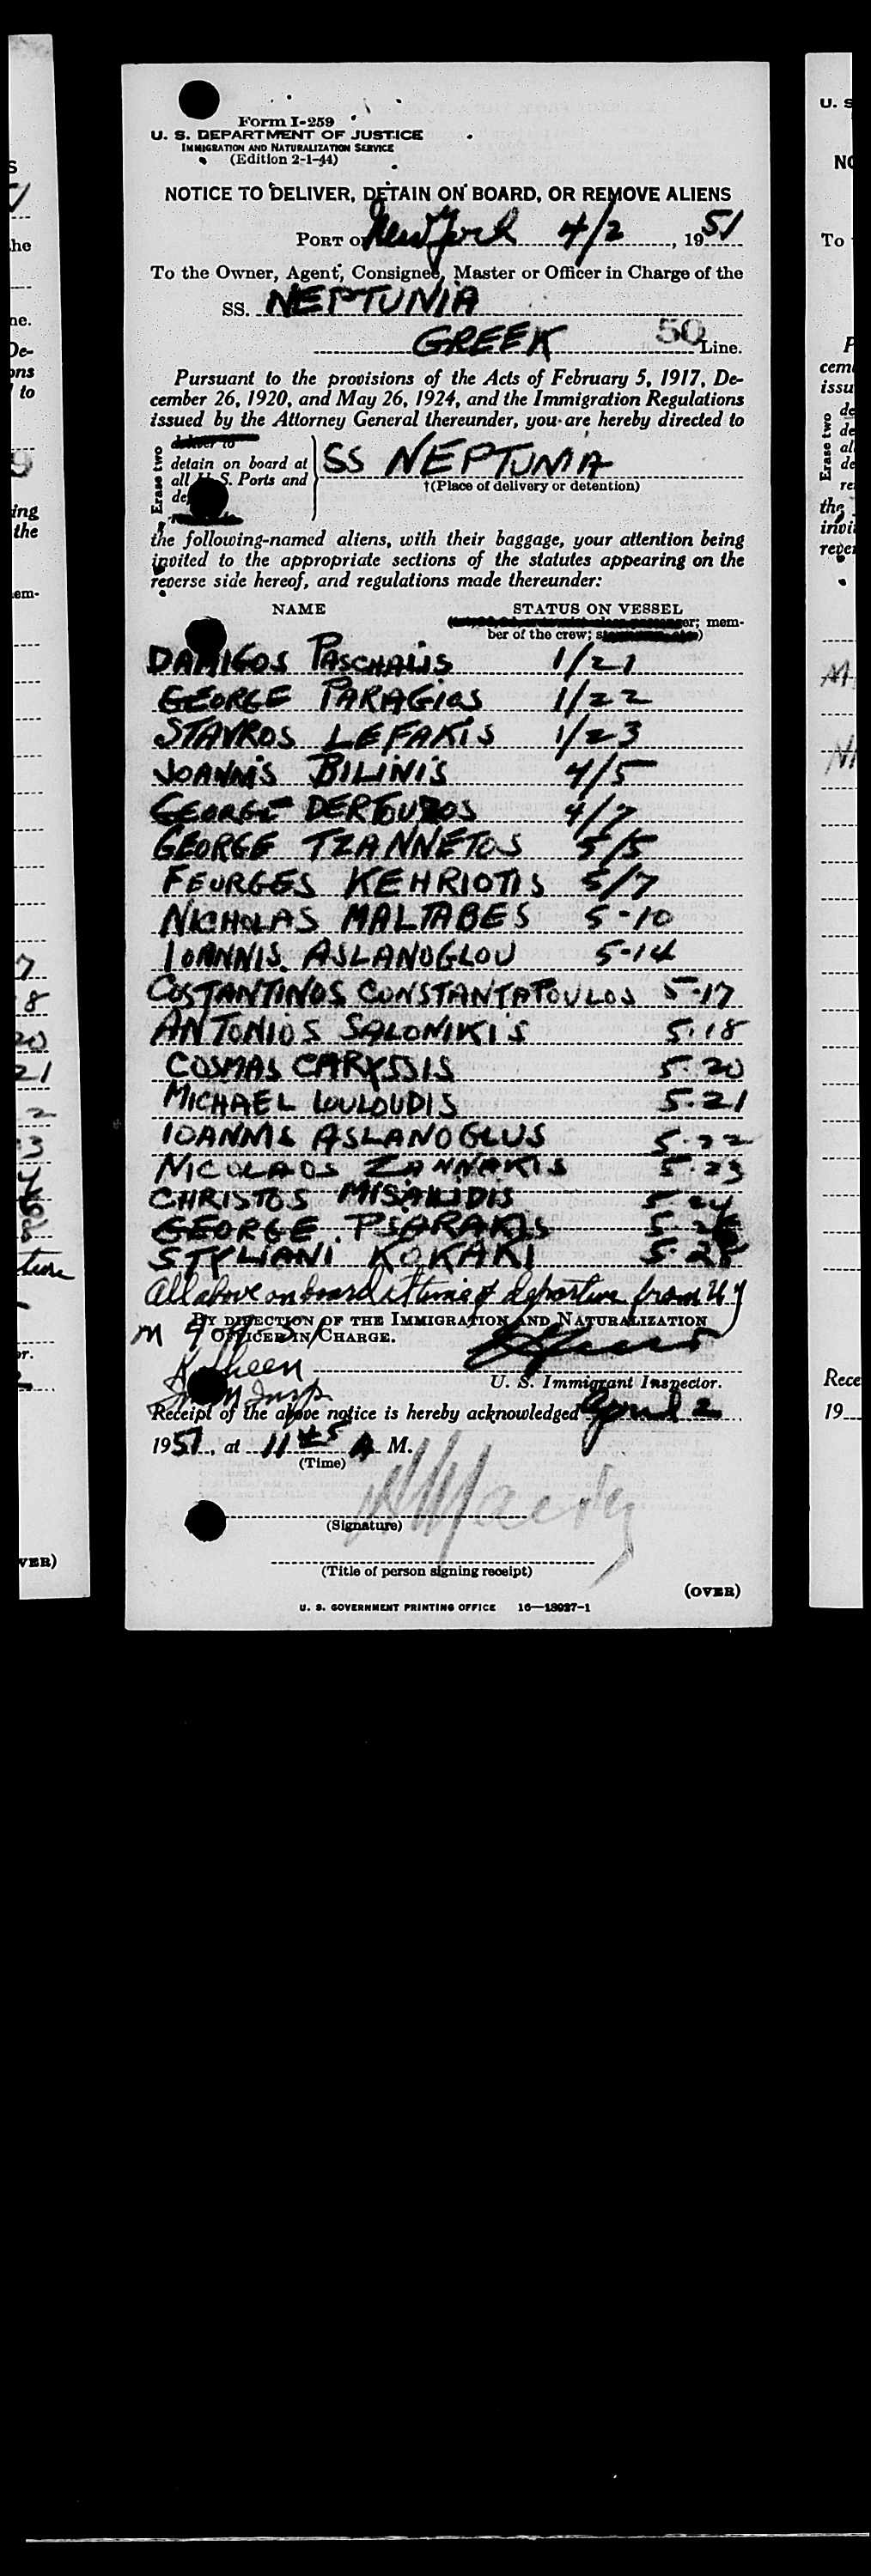 Form I-259
U. S. DEPARTMENT OF JUSTICE
IMMIGRATION AND NATURALIZATION SERVICE
(Edition 2-1-44)
NOTICE TO DELIVER, DETAIN ON BOARD, OR REMOVE ALIENS
PORT OF New York 4/2, 1951
To the Owner, Agent, Consignee, Master or Officer in Charge of the
SS. NEPTUNIA
GREEK 50 Line.
Pursuant to the provisions of the Acts of February 5, 1917, De-
cember 26, 1920, and May 26, 1924, and the Immigration Regulations
issued by the Attorney General thereunder, you are hereby directed to
Erase two
deliver to
detain on board at
all U.S. Ports and
SS NEPTUNIA
†(Place of delivery or detention)
the following-named aliens, with their baggage, your attention being
invited to the appropriate sections of the statutes appearing on the
reverse side hereof, and regulations made thereunder:
NAME STATUS ON VESSEL
mem-
ber of the crew;
DAMIGOS PASCHALIS 1/21
GEORGE PARAGIOS 1/22
STAVROS LEFAKIS 1/23
JOANNIS BILINIS 4/5
GEORGE DERTOUZOS 4/7
GEORGE TZANNETOS 5/5
FEURGES KEHRIOTIS 5/7
NICHOLAS MALTABES 5-10
IOANNIS ASLANOGLOU 5-14
COSTANTINOS CONSTANTATOULOS 5-17
ANTONIOS SALONIKIS 5-18
COSMAS CARYSSIS 5-20
MICHAEL LOULOUDIS 5-21
IOANNIS ASLANOGLUS 5-22
NICOLAOS ZANNAKIS 5-23
CHRISTOS MISAILIDIS 5-24
GEORGE PSARAKIS
STYLIANI KOKAKI 5-28
All above on board at time of departure from NY
BY DIRECTION OF THE IMMIGRATION AND NATURALIZATION
OFFICER IN CHARGE.
U. S. Immigrant Inspector.
Receipt of the above notice is hereby acknowledged April 2
1951, at 11 45 A M.
(Time)
(Signature)
(Title of person signing receipt)
(OVER)
U. S. GOVERNMENT PRINTING OFFICE 16—18027-1